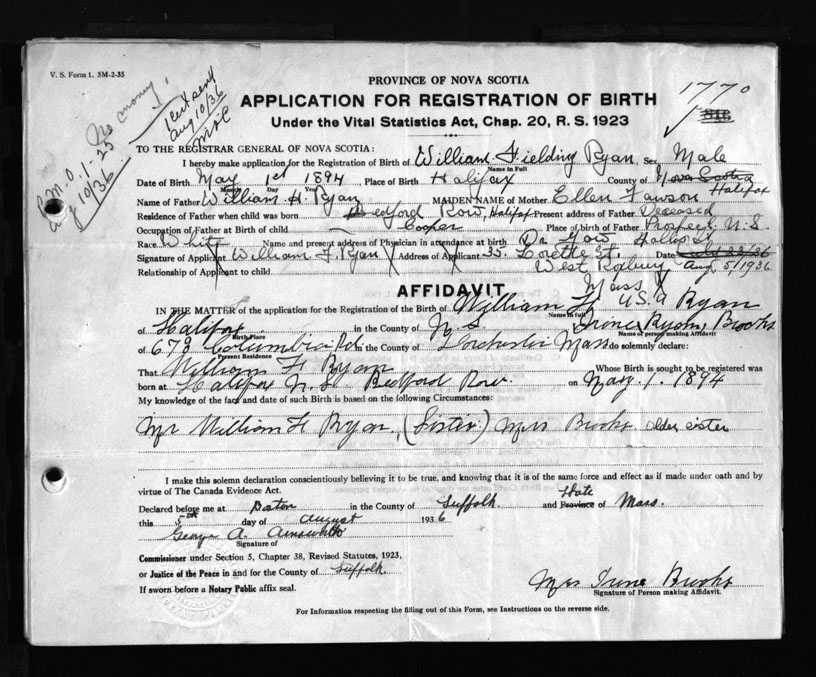 V. S. Form 1. 5M-2-35
No money,
P.M.O. 1-25
Aug 10/36
1 cert send
Aug 10/36
1770
PROVINCE OF NOVA SCOTIA
APPLICATION FOR REGISTRATION OF BIRTH
Under the Vital Statistics Act, Chap. 20, R. S. 1923
TO THE REGISTRAR GENERAL OF NOVA SCOTIA:
I hereby make application for the Registration of Birth of William Fielding Ryan Sex Male
Name in Full
Date of Birth May 1st 1894, Place of Birth Halifax County of Nova Scotia Halifax
Month Day Year
Name of Father William H. Ryan MAIDEN NAME of Mother Ellen Fawson
Residence of Father when child was born Bedford Row, Halifax Present address of Father Deceased
Occupation of Father at Birth of child Cooper Place of birth of Father Prospect N. S.
Race White Name and present address of Physician in attendance at birth Dr Gow Hollis St
Signature of Applicant William F. Ryan Address of Applicant 35 Lorette St. Date Aug 5/1936
West Roxbury
Relationship of Applicant to child
Mass
AFFIDAVIT
U.S.A
IN THE MATTER of the application for the Registration of the Birth of William F. Ryan
Name in full
of Halifax in the County of N S Irine Ryan, Brooks
Birth Place Name of person making Affidavit
of 678 Columbia Rd in the County of Dorchester Mass do solemnly declare:
Present Residence
That William F Ryan Whose Birth is sought to be registered was
born at Halifax N. S. Bedford Row. on May. 1. 1894
My knowledge of the fact and date of such Birth is based on the following Circumstances:
Mr William F Ryan, (Sister) Mrs Brooks. older sister
I make this solemn declaration conscientiously believing it to be true, and knowing that it is of the same force and effect as if made under oath and by
virtue of The Canada Evidence Act.
Declared before me at Boston in the County of Suffolk and State Province of Mass.
this 5th day of August 1936
George A. Ainsworth
Signature of
Commissioner under Section 5, Chapter 38, Revised Statutes, 1923,
or Justice of the Peace in and for the County of Suffolk.
If sworn before a Notary Public affix seal.
Mrs Irine Brooks
Signature of Person making Affidavit.
For Information respecting the filling out of this Form, see Instructions on the reverse side.